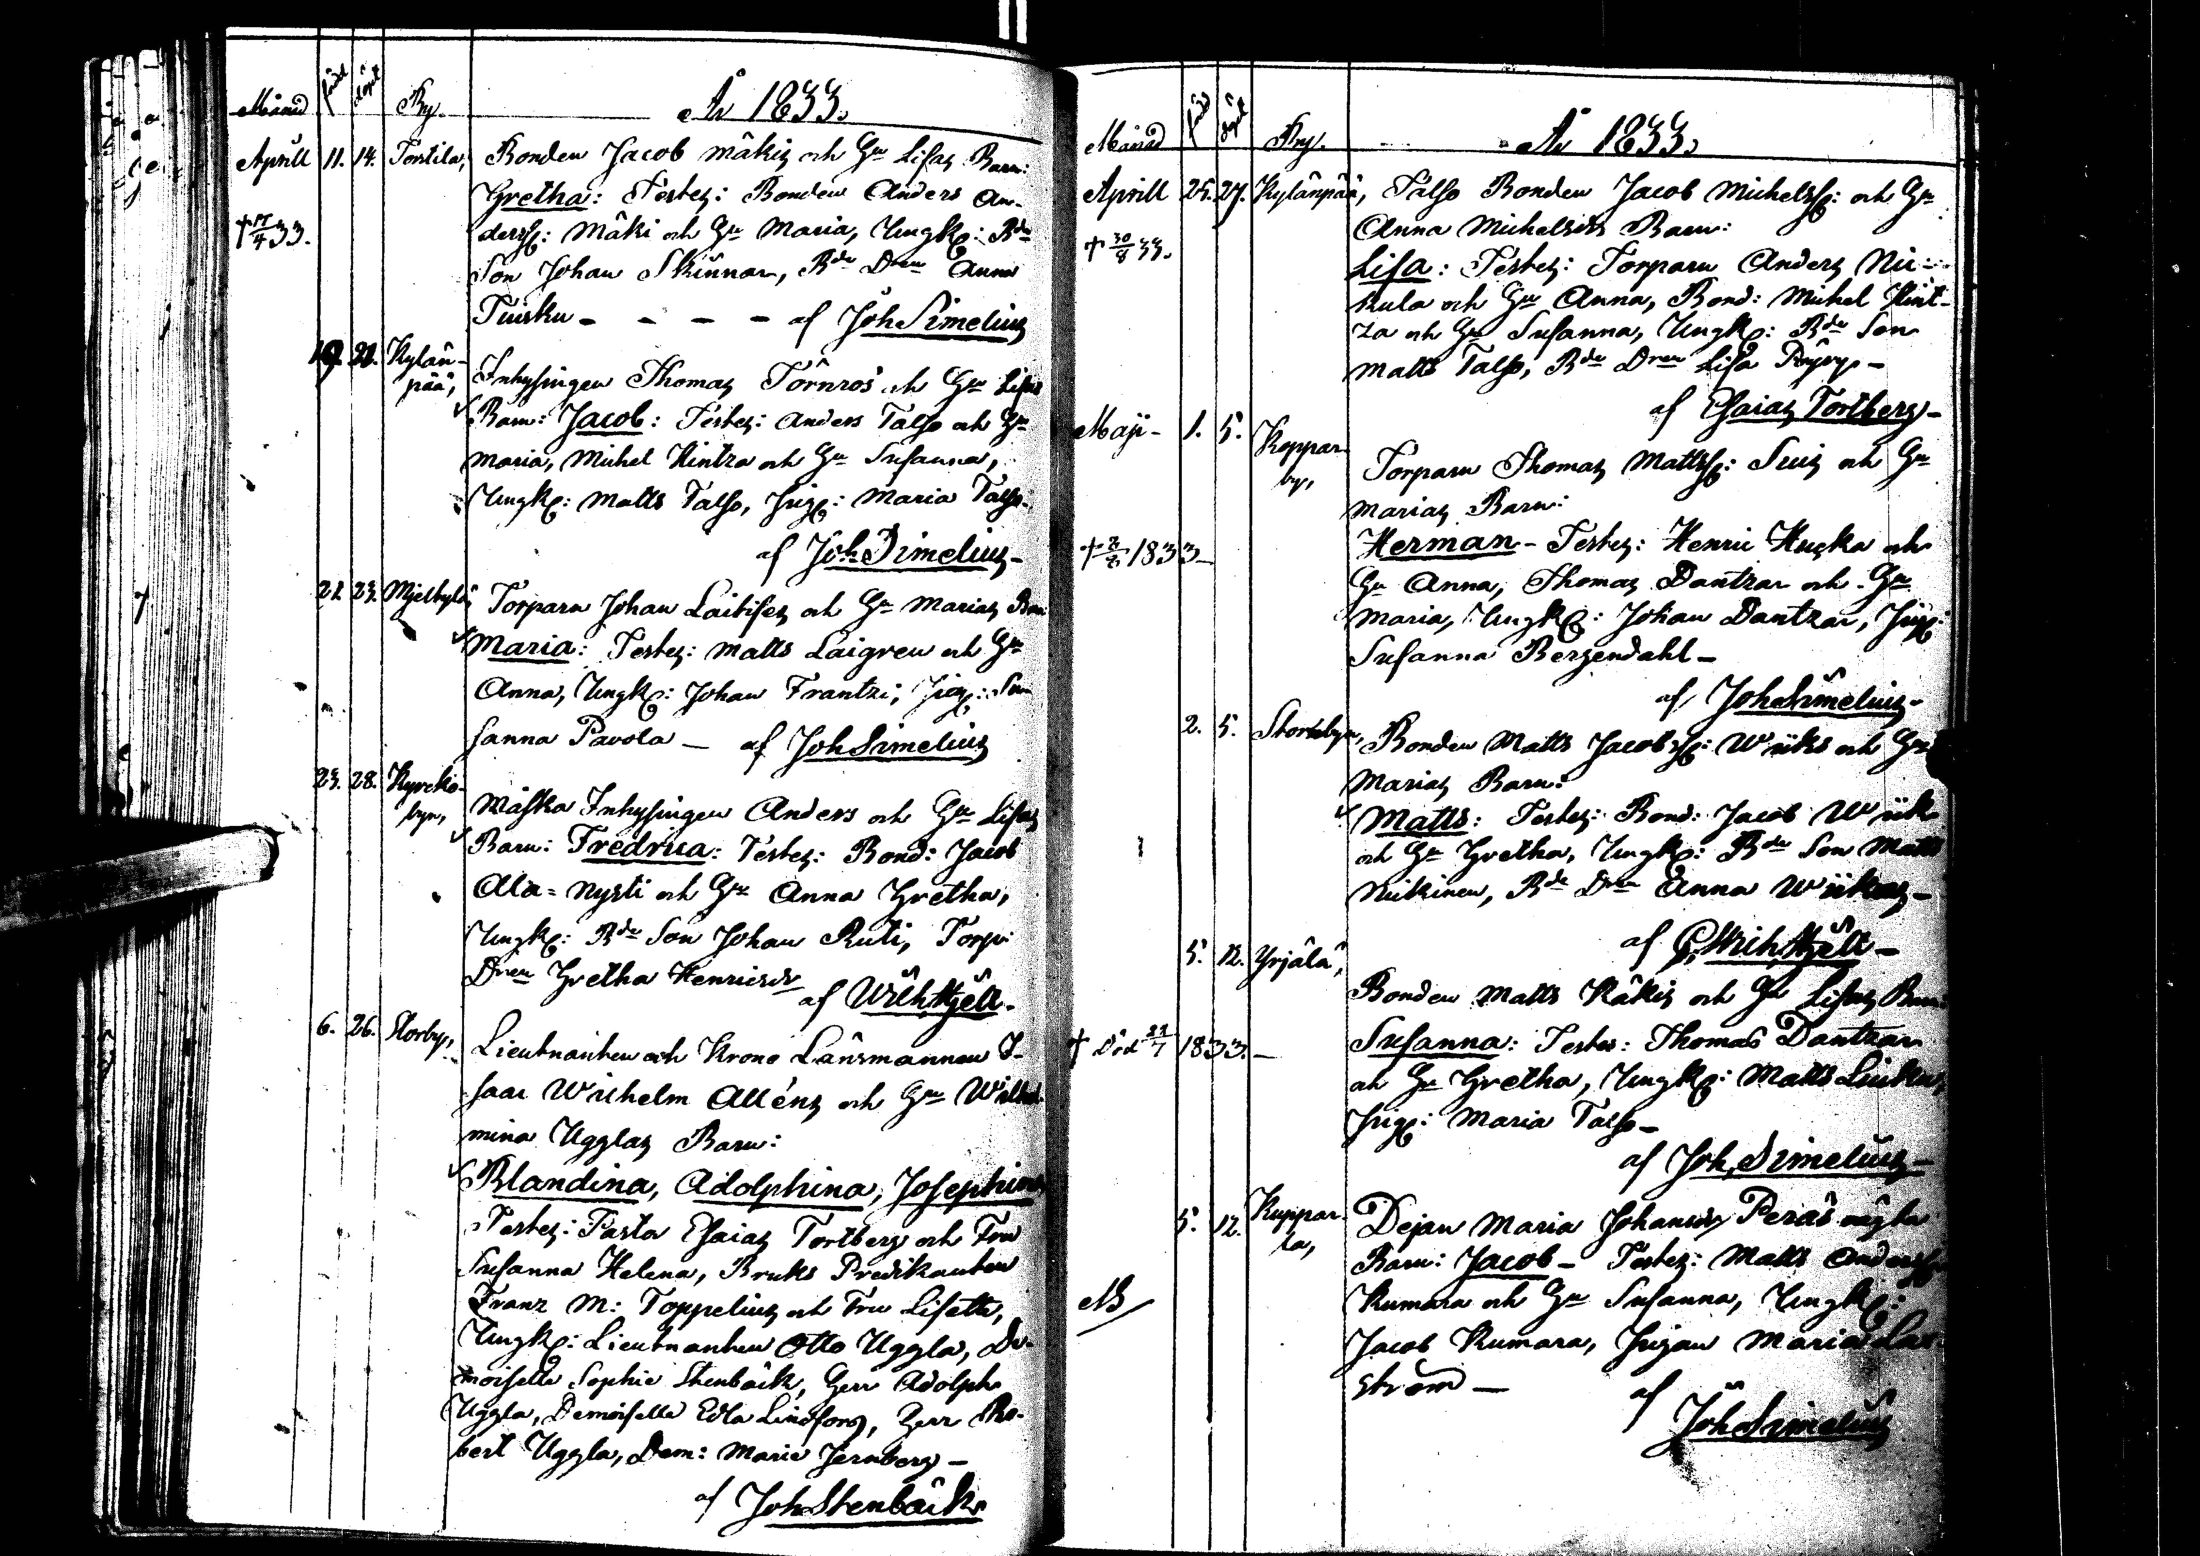 Månad född döpt By. År 1833.
Aprill 11. 14. Tortila, Bonden Jacob Mäkis och Hu Lisas Barn:
Gretha: Testes: Bonden Anders An-
† 17/4 33. derss: Mäki och Hu Maria, Ungk: Bde
Son Johan Skinnar, Bde Dren Anna
Tuisku - - - - af Joh Simelius
19. 21. Kylän-
pää, Inhysingen Thomas Törnros och Hu Lisas
Barn: Jacob: Testes: Anders Talso och Hu
Maria, Michel Hintza och Hu Susanna,
Ungk: Matts Talso, Pig: Maria Talso.
af Joh Simelius -
21. 23. Mjelkylä, Torparn Johan Laitises och Hu Marias Barn
Maria: Testes: Matts Laigren och Hu
Anna, Ungk: Johan Frantzi, Pig: Su-
sanna Pavola - af Joh Simelius
23. 28. Kyrcko-
byn, Måska Inhysingen Anders och Hu Lisas
Barn: Fredrica: Testes: Bond: Jacob
Ala-nysti och Hu Anna Gretha,
Ungk: Bde Son Johan Ruti, Torp:
Dren Gretha Henricsdr
af Wilh. Kjell.
6. 26. Storby, Lieutnanten och Krono Länsmannen I-
saac Wilhelm Alléns och Hu Wilhel-
mina Ugglas Barn:
Blandina, Adolphina, Josephina
Testes: Pastor Esaias Tortberg och Fru
Susanna Helena, Bruks Predikanten
Franz M: Toppelius och Fru Lisette,
Ungk: Lieutnanten Otto Uggla, De-
moiselle Sophie Stenbäck, Herr Adolph
Uggla, Demoiselle Edla Lindfors, Herr Ro-
bert Uggla, Dem: Marie Jernberg -
af Joh Stenbäck
Månad född döpt By. År 1833.
Aprill 25. 27. Kylänpää, Talso Bonden Jacob Michelss: och Hu
Anna Michelsdrs Barn:
† 30/8 33. Lisa: Testes: Torparn Anders Nic-
kula och Hu Anna, Bond: Michel Hint-
za och Hu Susanna, Ungk: Bde Son
Matts Talso, Bde Dren Lisa -
af Esaias Tortberg -
Maji - 1. 5. Koppar-
by, Torparn Thomas Mattss: och Hu
Marias Barn:
† 2/8 1833 - Herman - Testes: Henric och
Hu Anna, Thomas Dantzar och Hu
Maria, Ungk: Johan Dantzar, Pig:
Susanna Bergendahl -
af Joh Simelius -
2. 5. Bonden Matts Jacobss: Wiiks och Hu
Marias Barn:
Matts: Testes: Bond: Jacob Wiik
och Hu Gretha, Ungk: Bde Son Matts
Bde Dren Anna Wiikas -
af Wilh. Kjell -
5. 12. Yrjälä, Bonden Matts Käkis och Hu Lisas Barn
† död 21/7 1833. - Susanna: Testes: Thomas Dantzar
och Hu Gretha, Ungk: Matts
Pig: Maria Talso -
af Joh Simelius -
5. 12. Kuppar-
la, Dejan Maria Johansdr
Barn: Jacob - Testes: Matts Anderss:
NB Kumara och Hu Susanna, Ungk:
Jacob Kumara, Pigan Maria
ström - af
Joh Simelius